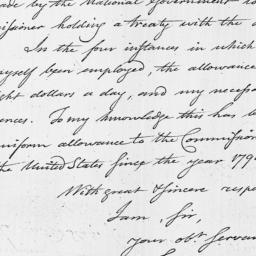 ade by the National Government to
issioner holding a treaty with the
In the four instances in which
myself been employed, the allowance
ight dollars a day, and my necessa
ences. To my knowledge this has be
uniform allowance to the Commission
the United States since the year 179
With great & sincere respe
I am, Sir,
your obt. Servan